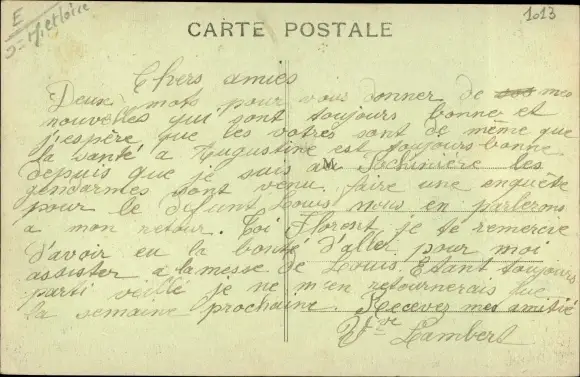 E
D= M. et Loire
1013
CARTE POSTALE
Chers amies
Deux mots pour vous donner de mes
nouvelles qui sont toujours bonne et
j'espère que les votres sont de même que
la santé a Augustine est toujours bonne
depuis que je suis a M Sochinière les
gendarmes sont venu faire une enquête
pour le défunt Louis nous en parlerons
a mon retour. Toi Florent je te remercie
d'avoir eu la bonté d'aller pour moi
assister a la messe de Louis. Etant toujours
parti veillé je ne m'en retournerais que
la semaine prochaine. Recevez mes amitié
Vve Lambert